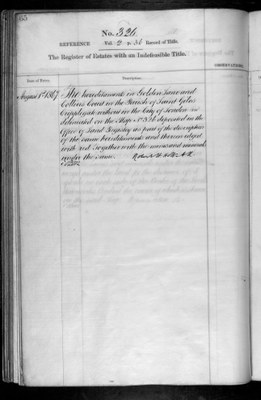 No. 326
REFERENCE Vol. 2 p. 36 Record of Title.
The Register of Estates with an Indefeasible Title.
OBSERVATIONS.
Date of Entry.
Description.
August 1st 1867
The hereditaments in Golden Lane and
Collins Court in the Parish of Saint Giles
Cripplegate without in the City of London
delineated on the Map No. 326 deposited in the
Office of Land Registry as part of the description
of the same hereditaments and thereon edged
with red Together with the mines and minerals
under the same.